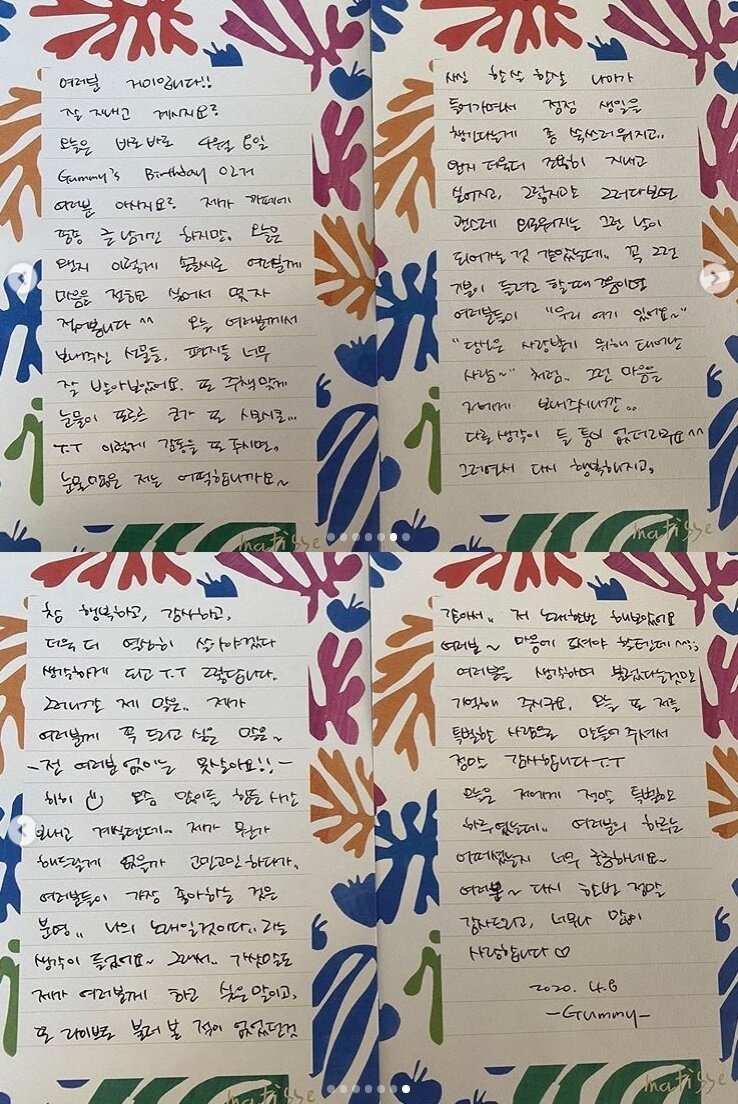 여러분 거미입니다!!
잘 지내고 계시지요?
오늘은 바로바로 4월 8일
Gummy's Birthday 인거
여러분 아시지요? 제가 카페에
평소 글 남기긴 하지만, 오늘은
왠지 이렇게 손글씨로 여러분께
마음을 전하고 싶어서 몇 자
적어봅니다 ^^ 오늘 여러분께서
보내주신 선물들, 편지들 너무
잘 받아보았어요. 또 주책맞게
눈물이 또르르 코가 또 시큰시큰...
T.T 이렇게 감동을 또 주시면,
눈물많은 저는 어떡합니까요~
사실 한살 한살 나이가
들어가면서 점점 생일을
챙긴다는게 좀 쑥쓰러워지고..
왠지 더욱더 조용히 지내고
싶어지고, 그렇지만 그러다보면
괜스레 외로워지는 그런 날이
되어가는 것 같았는데.. 꼭 그런
기분이 들려고 할 때 즈음이면
여러분들이 "우리 여기 있어요~"
"당신은 사랑받기 위해 태어난
사람~" 처럼.. 그런 마음을
저에게 보내주시니깐..
다른 생각이 들 틈이 없더라구요^^
그러면서 다시 행복해지고,
참 행복하고, 감사하고,
더욱 더 열심히 살아야겠다
생각하게 되고 T.T 그렇답니다.
그러니깐 제 말은.. 제가
여러분께 꼭 드리고 싶은 말은~
-전 여러분 없이는 못살아요!!-
히히 요즘 많이들 힘든 시간
보내고 계실텐데.. 제가 무언가
해드릴게 없을까 고민고민 하다가..
여러분들이 가장 좋아하는 것은
분명.. 나의 노래일것이다.. 라는
생각이 들었어요~ 그래서.. 가삿말도
제가 여러분께 하고 싶은 말이고,
또 라이브로 불러 본 적이 없었던것
같아서.. 저 노래한번 해보았어요
여러분~ 마음에 드셔야 할텐데^^;;
여러분을 생각하며 불렀다는것만
기억해 주시구요, 오늘 또 저를
특별한 사람으로 만들어 주셔서
정말 감사합니다 T.T
오늘은 저에게 정말 특별한
하루였는데.. 여러분의 하루는
어떠셨는지 너무 궁금하네요~
여러분~ 다시 한번 정말
감사드리고, 너무나 많이
사랑합니다 ♡
2020. 4. 8
-Gummy-
matisse
matisse
matisse
matisse